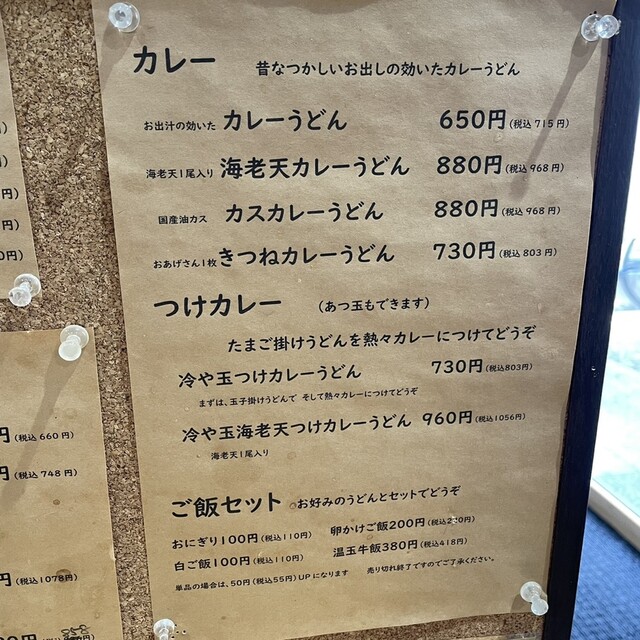 カレー 昔なつかしいお出しの効いたカレーうどん
お出汁の効いた カレーうどん 650円(税込715円)
海老天1尾入り 海老天カレーうどん 880円(税込968円)
国産油カス カスカレーうどん 880円(税込968円)
おあげさん1枚 きつねカレーうどん 730円(税込803円)
つけカレー (あつ玉もできます)
たまご掛けうどんを熱々カレーにつけてどうぞ
冷や玉つけカレーうどん 730円(税込803円)
まずは、玉子掛けうどんで そして熱々カレーにつけてどうぞ
冷や玉海老天つけカレーうどん 960円(税込1056円)
海老天1尾入り
ご飯セット お好みのうどんとセットでどうぞ
おにぎり100円(税込110円) 卵かけご飯200円(税込220円)
白ご飯100円(税込110円) 温玉牛飯380円(税込418円)
単品の場合は、50円(税込55円)UPになります 売り切れ終了ですのでご了承ください。
円(税込660円)
円(税込748円)
円(税込1078円)